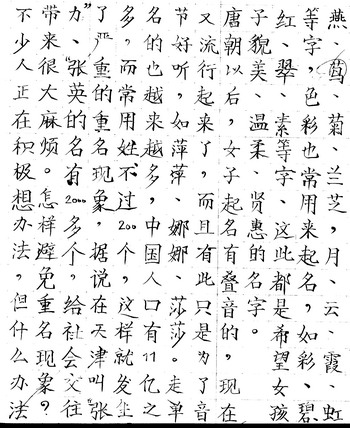 燕、莺、菊、兰芝,月、云、霞、虹
等字,色彩也常用来起名,如彩、碧
红、翠、素等字、这此都是希望女孩
子貌美、温柔、贤惠的名字。
唐朝以后,女子起名有叠音的。现在
又流行起来了,而且有此只是为了音
节好听,如萍萍、娜娜、莎莎。走单
名的也越来越多,中国人口有11亿之
多,而常用姓不过200个,这样就发生
了严重的重名现象,据说在天津叫"张
力"、"张英的名有2000多个,给社会交往
带来很大麻烦。怎样避免重名现象?
不少人正在积极想办法,但什么办法